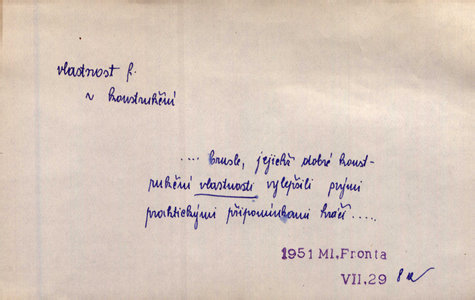 vlastnost f.
v konstrukční
.... brusle, jejichž dobré konst-
rukční vlastnosti vylepšili svými
praktickými připomínkami hráči .....
1951 Ml. Fronta
VII.29